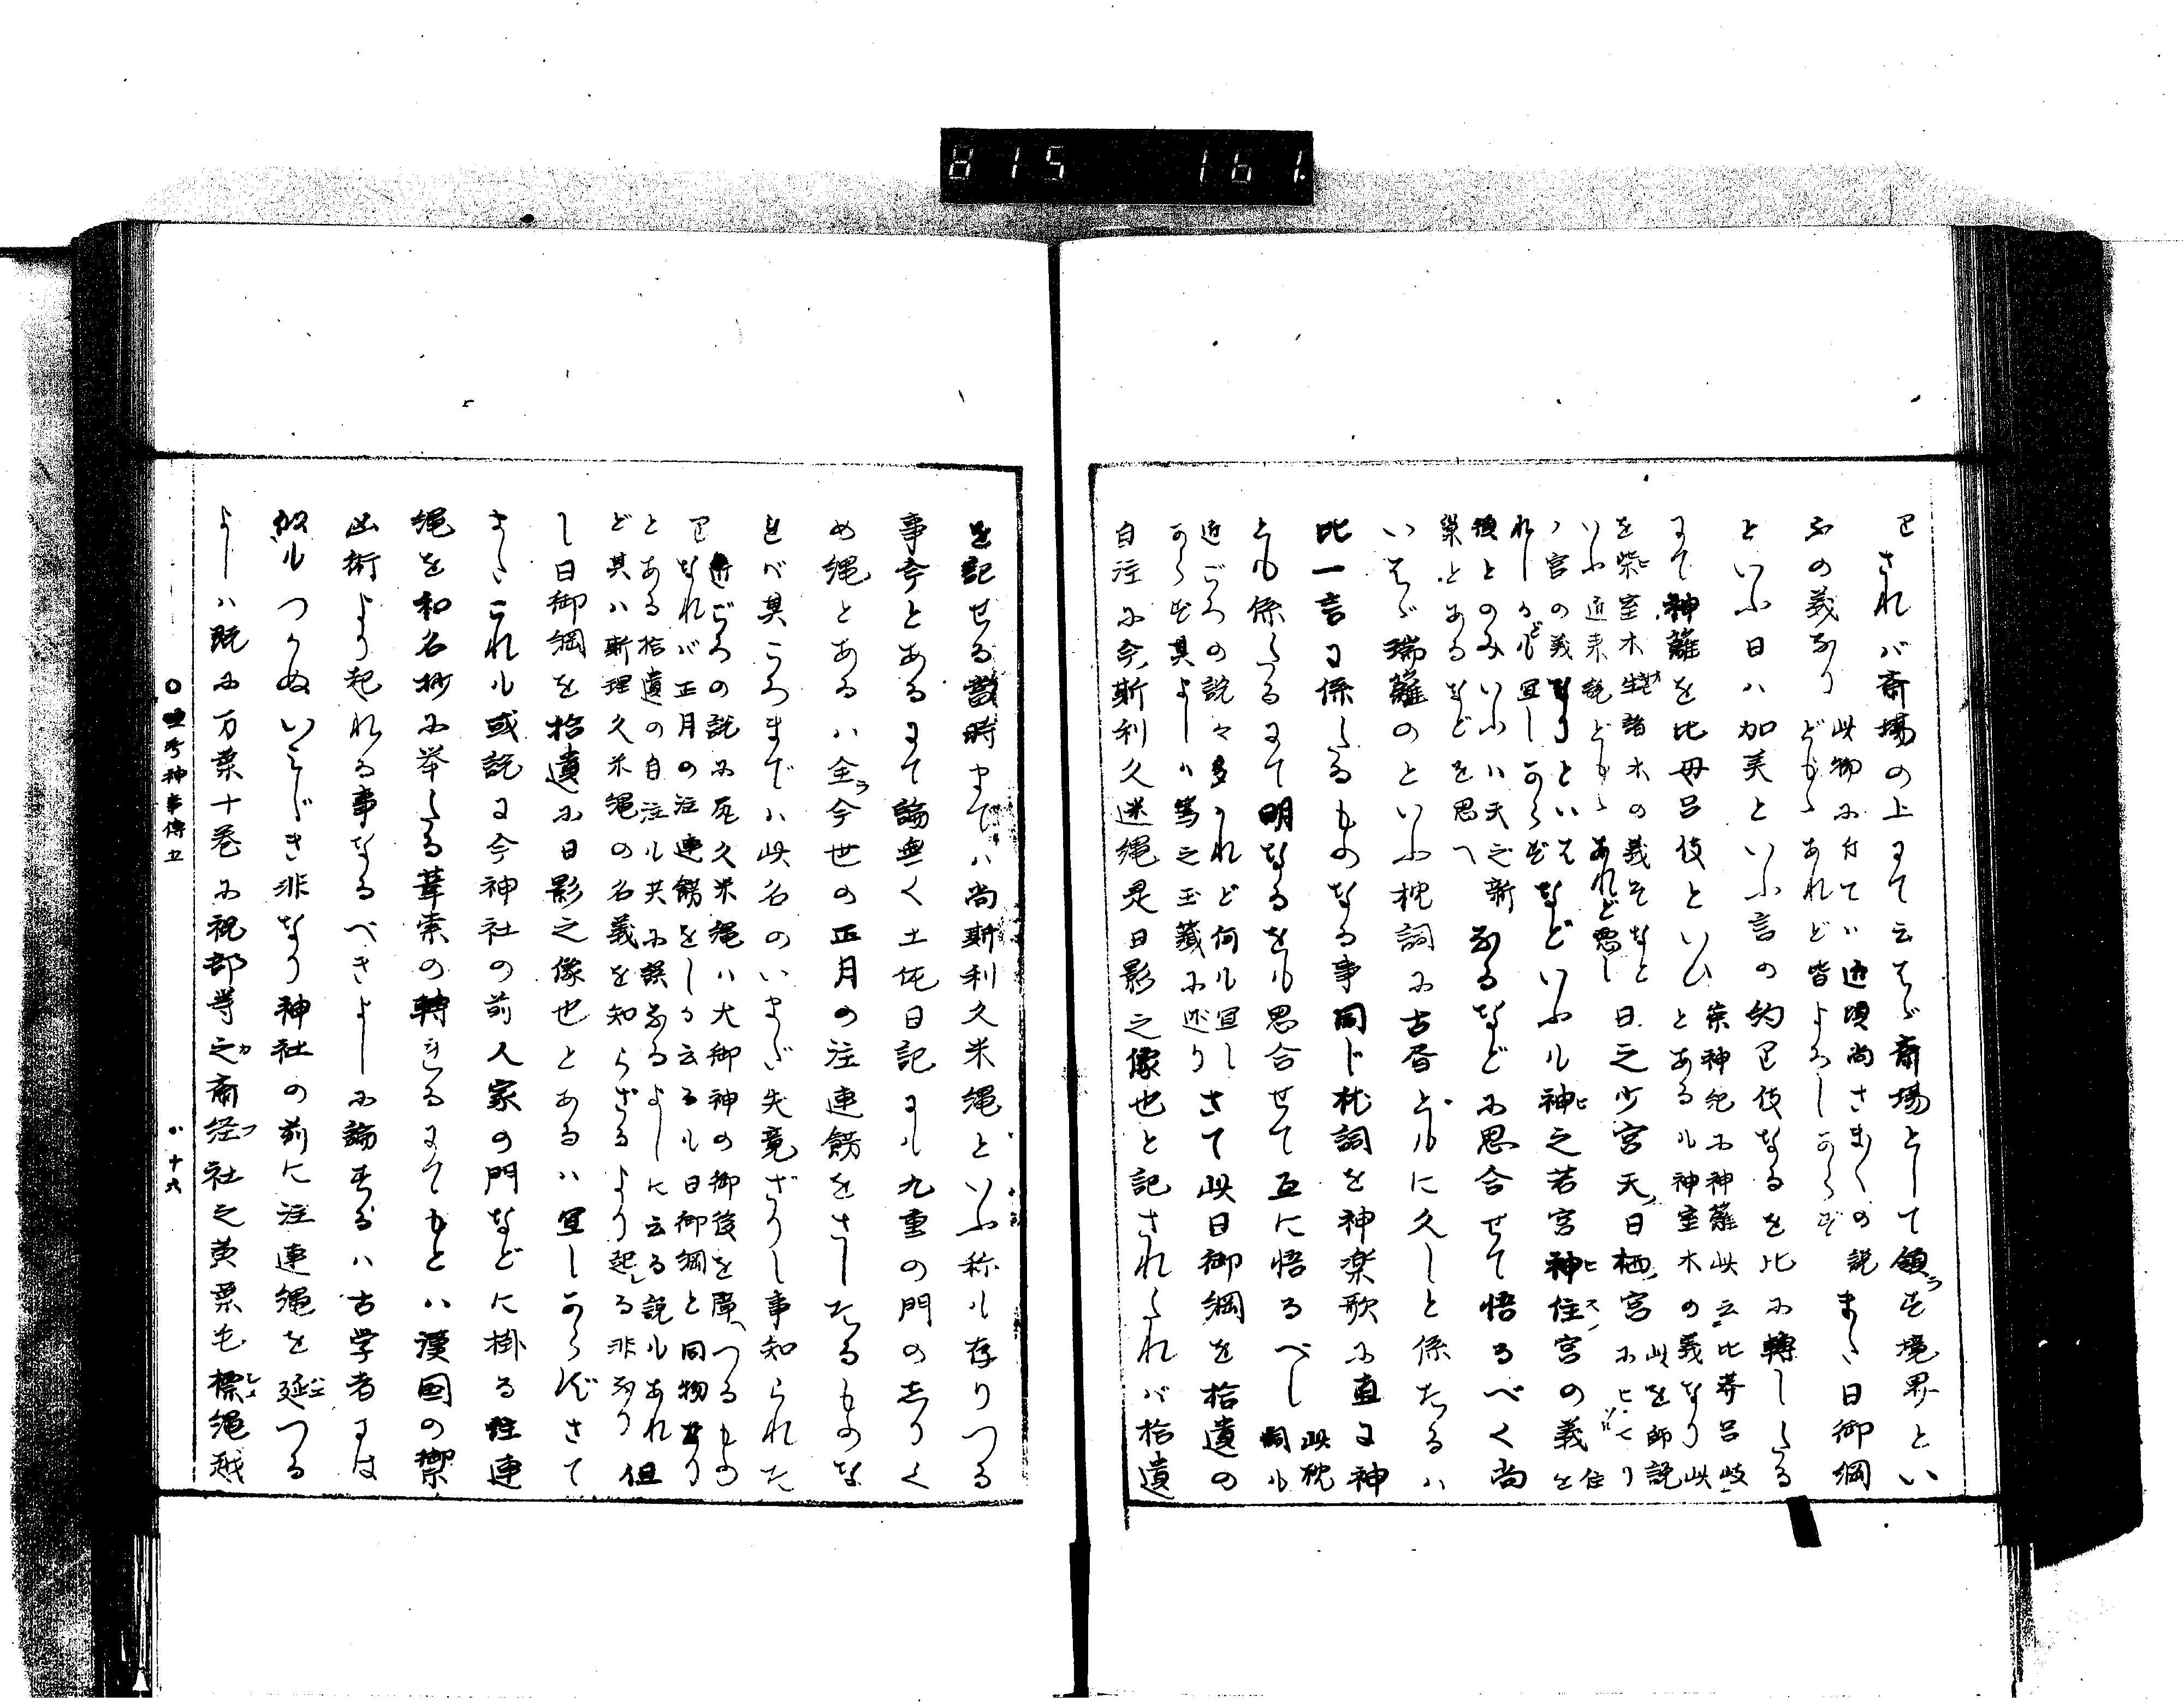 815 161.
 されバ斎場の上にて云はゞ斎場として領す境界とい
ふの義なり 此物に付てハ近頃尚さま〴〵の説
どもゝあれど皆よろしからず また日御綱
といふ日ハ加美といふ言の約り伎なるを比に轉したる
にて神籬を比毋呂伎といひ 崇神紀に神籬此云比莽呂岐
とあるも神室木の義なり此
を柴室木生諸木の義そなと 此を師説
いふ近来説どもゝあれど悪し 日之少宮天日栖宮に
ノ宮の義なりといはなどいふも神之若宮神住宮の義を
れしかども宜しからず
後とのみいふハ天之新
巣とあるなどを思へ なるなどに思合せて悟るべく尚
いはゞ瑞籬のといふ枕詞に古昔ともに久しと係たるハ
比一言に係したるものなる事同じ枕詞を神楽歌に直に神
とも係たるにて明なるをも思合せて互に悟るべし 此枕
詞も
近ごろの説々多かれど何も宜し
からず其よしハ篤之玉籤に述り さて此日御綱を拾遺の
自注に今斯利久迷縄是日影之像也と記されたれバ拾遺
を記せる當時までハ尚斯利久米縄といふ称も存りつる
事今とあるにて論無く土佐日記にも九重の門のしりく
め縄とあるハ全今世の正月の注連餝をさしたるものな
れバ其ころまでハ此名のいまだ失竟ざりし事知られた
り 近ごろの説に尻久米縄ハ大御神の御後を廣つるもの
なれバ正月の注連餝をしか云るも日御綱と同物なり
とある拾遺の自注も共に誤なるよしに云る説もあれ
ど其ハ斯理久米縄の名義を知らざるより起れる非なり 但
し日御綱を拾遺に日影之像也とあるハ宜しからずさて
またこれも或説に今神社の前人家の門などに掛る注連
縄を和名抄に挙たる葦索の轉れるにてもとハ漢国の禦
凶術より起れる事なるべきよしに論するハ古学者には
似つかぬいミじき非なり神社の前に注連縄を延つる
よしハ既に万葉十巻に祝部等之斎経社之黄葉毛標縄越
十六